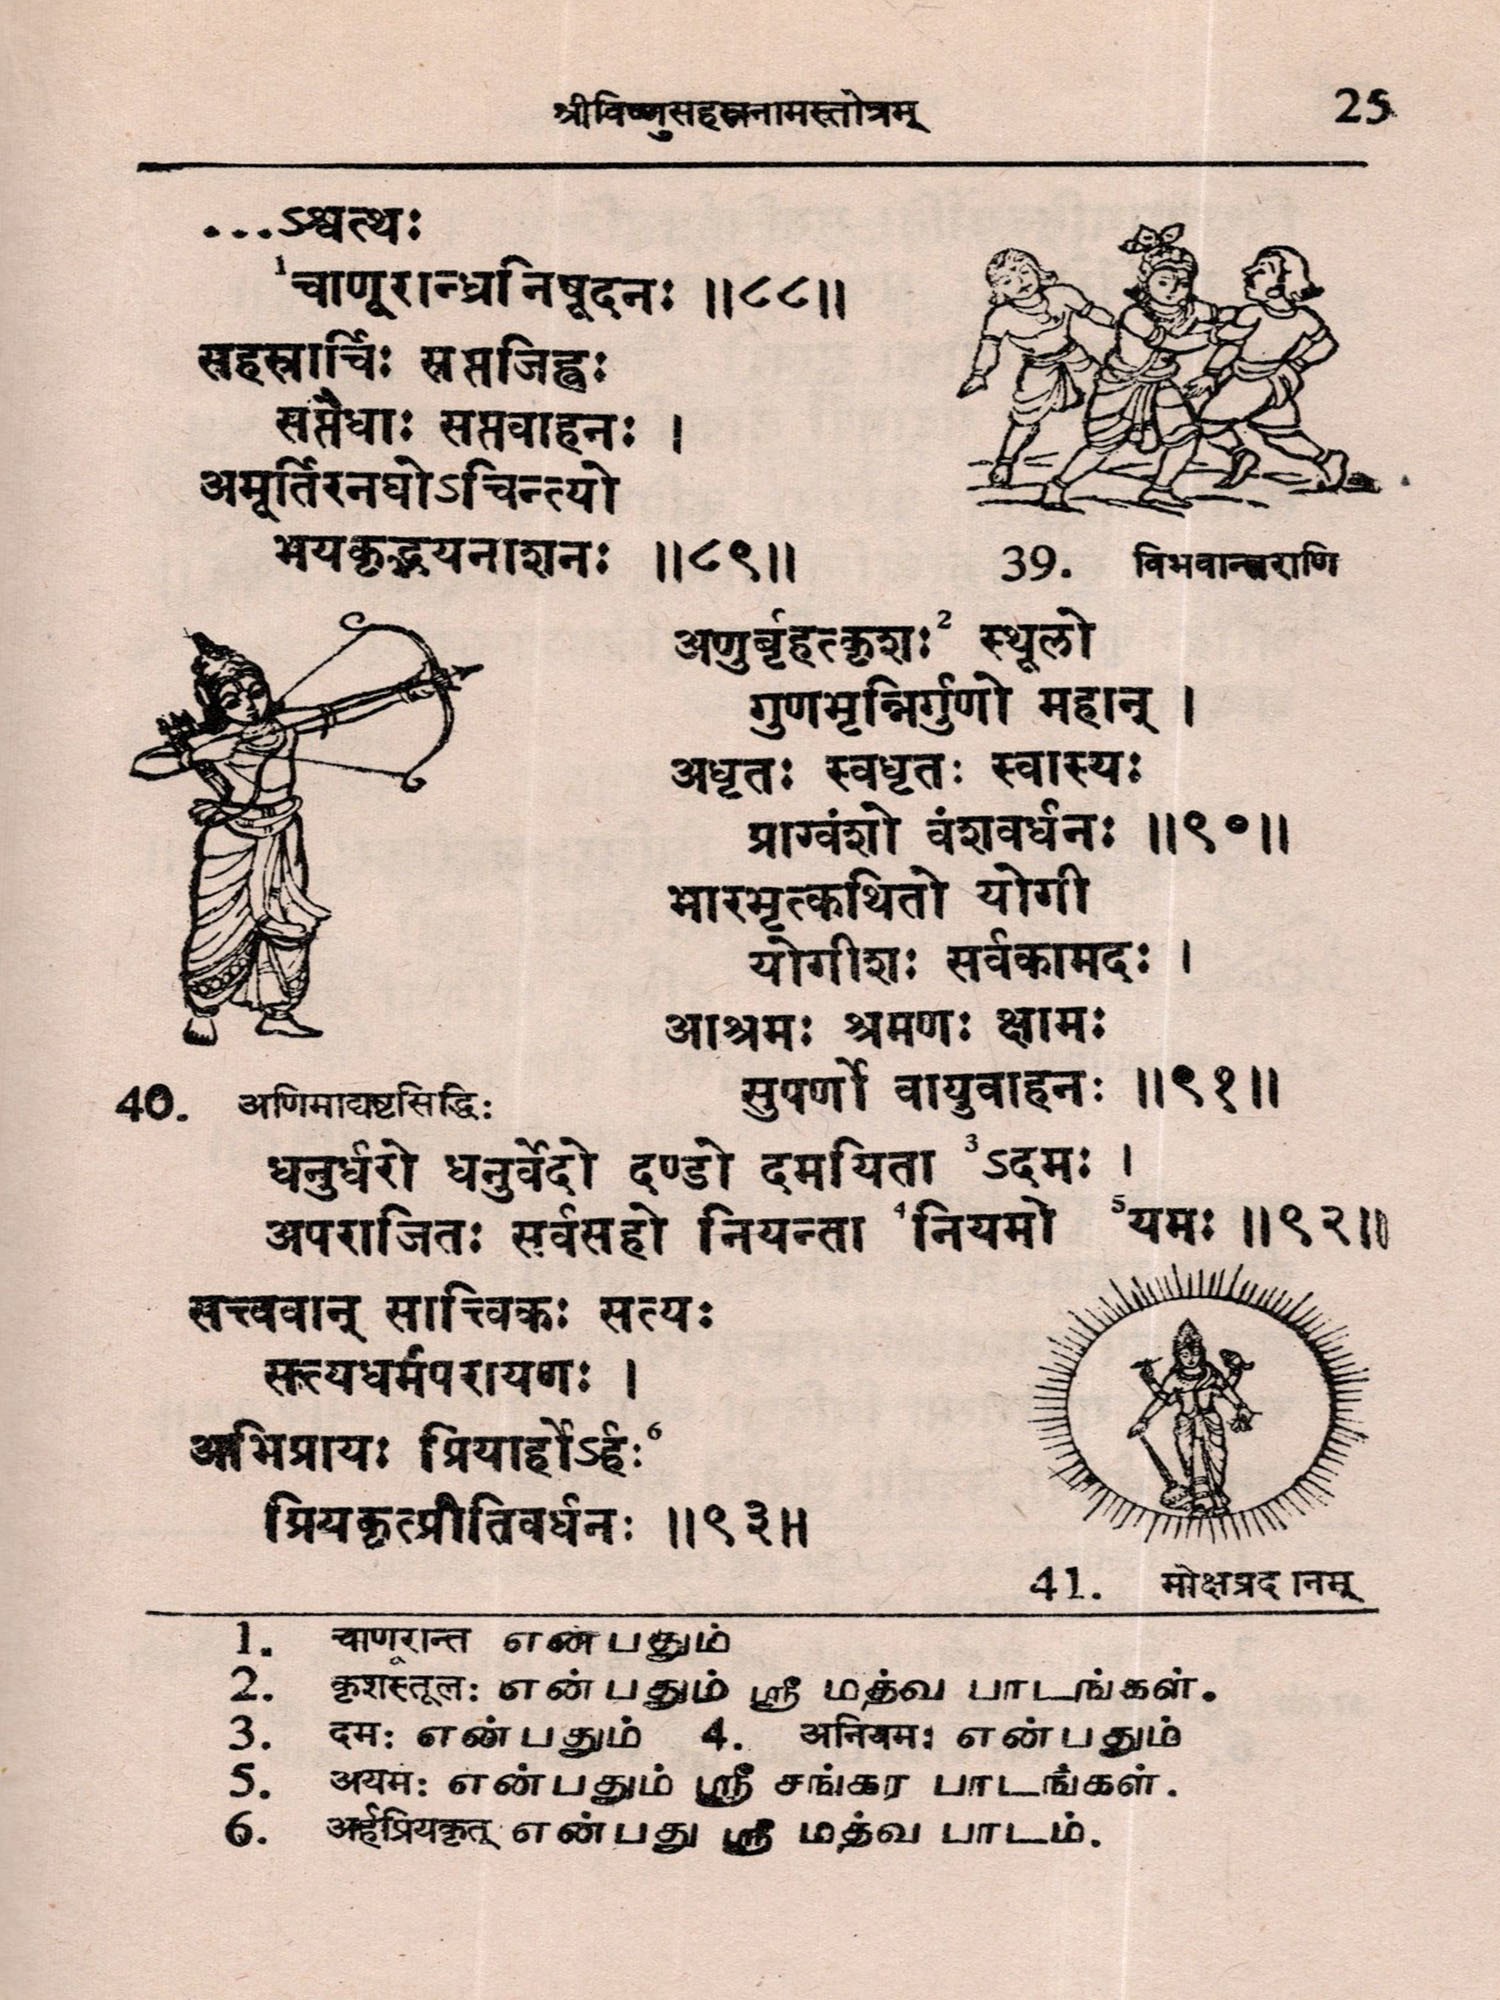 श्रीविष्णुसहस्रनामस्तोत्रम् 25
...ऽश्वत्थः
¹चाणूरान्ध्रनिषूदनः ॥८८॥
सहस्रार्चिः सप्तजिह्वः
सप्तैधाः सप्तवाहनः ।
अमूर्तिरनघोऽचिन्त्यो
भयकृद्भयनाशनः ॥८९॥
39. विभवान्तराणि
अणुर्बृहत्कृशः² स्थूलो
गुणभृन्निर्गुणो महान् ।
अधृतः स्वधृतः स्वास्यः
प्राग्वंशो वंशवर्धनः ॥९०॥
भारभृत्कथितो योगी
योगीशः सर्वकामदः ।
आश्रमः श्रमणः क्षामः
सुपर्णो वायुवाहनः ॥९१॥
40. अणिमाद्यष्टसिद्धिः
धनुर्धरो धनुर्वेदो दण्डो दमयिता ³ऽदमः ।
अपराजितः सर्वसहो नियन्ता ⁴नियमो ⁵यमः ॥९२॥
सत्त्ववान् सात्त्विकः सत्यः
सत्यधर्मपरायणः ।
अभिप्रायः प्रियार्होऽर्हः⁶
प्रियकृत्प्रीतिवर्धनः ॥९३॥
41. मोक्षप्रदानम्
1. चाणूरान्त என்பதும்
2. कृशस्तूलः என்பதும் ஸ்ரீ மத்வ பாடங்கள்.
3. दमः என்பதும் 4. अनियमः என்பதும்
5. अयमः என்பதும் ஸ்ரீ சங்கர பாடங்கள்.
6. अर्हप्रियकृत् என்பது ஸ்ரீ மத்வ பாடம்.